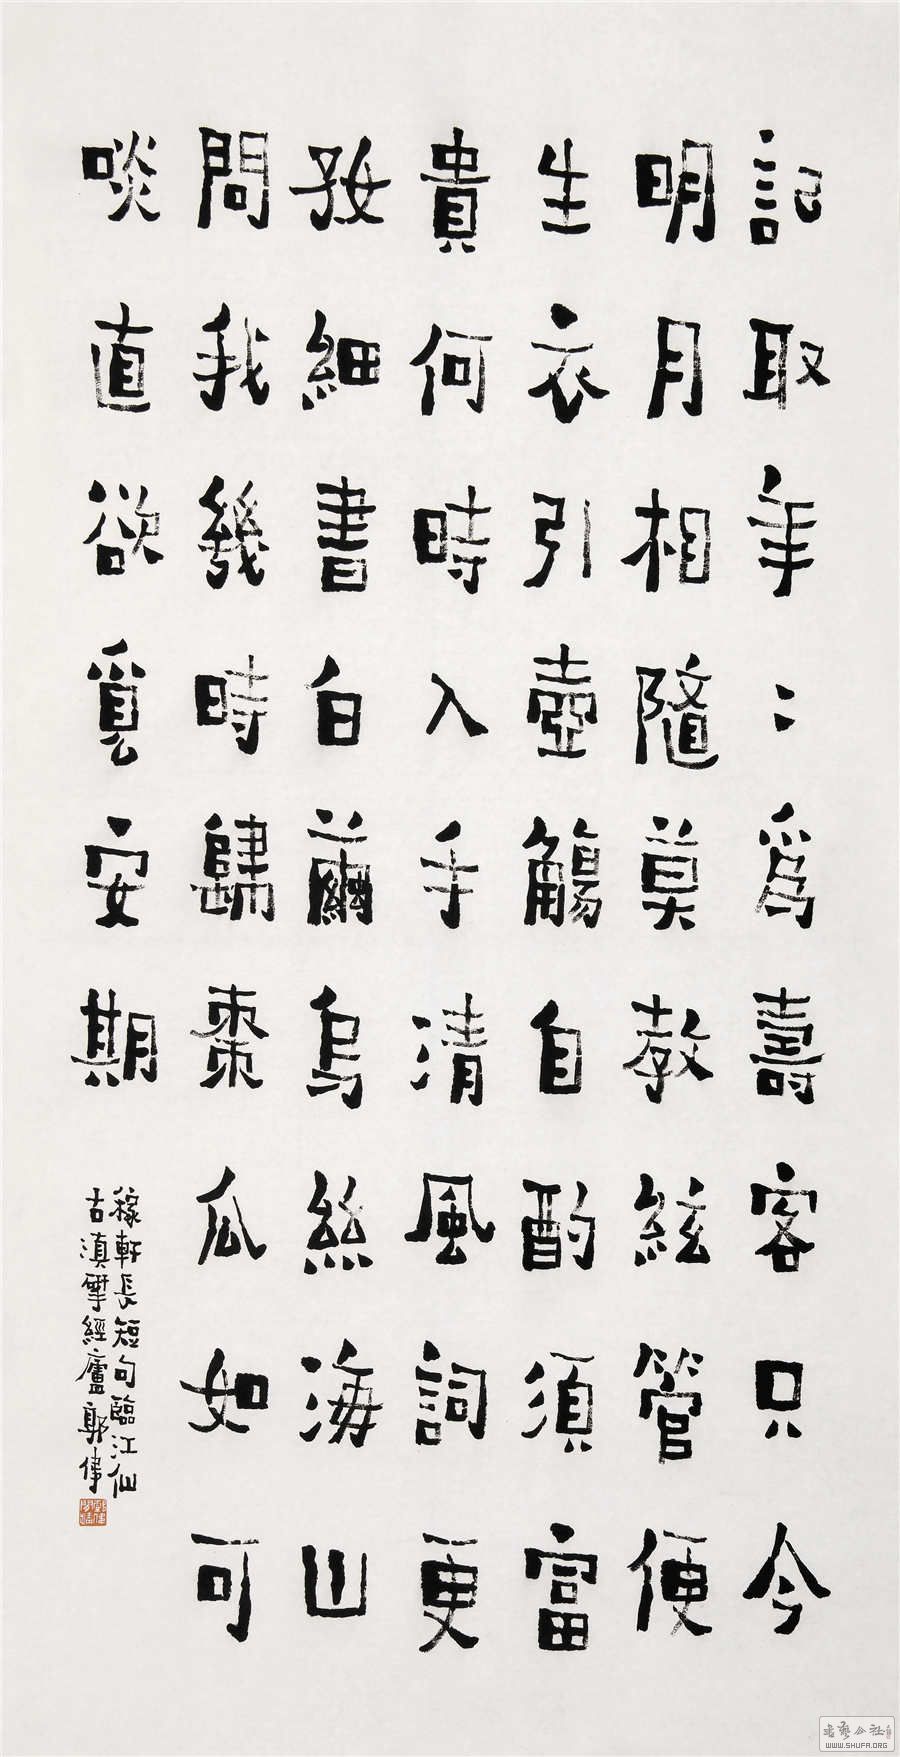 記取年〻爲壽客只今
明月相隨莫教絃管便
生衣引壺觴自酌須富
貴何時入手清風詞更
好細書白繭烏絲海山
問我幾時歸棗瓜如可
啖直欲覓安期
稼軒長短句臨江仙
古滇揅經廬郭偉
書藝公社
WWW.SHUFA.ORG